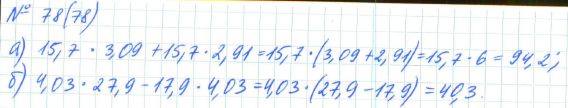 № 78(78)
а) 15,7 · 3,09 + 15,7 · 2,91 = 15,7 · (3,09 + 2,91) = 15,7 · 6 = 94,2;
б) 4,03 · 27,9 - 17,9 · 4,03 = 4,03 · (27,9 - 17,9) = 40,3.